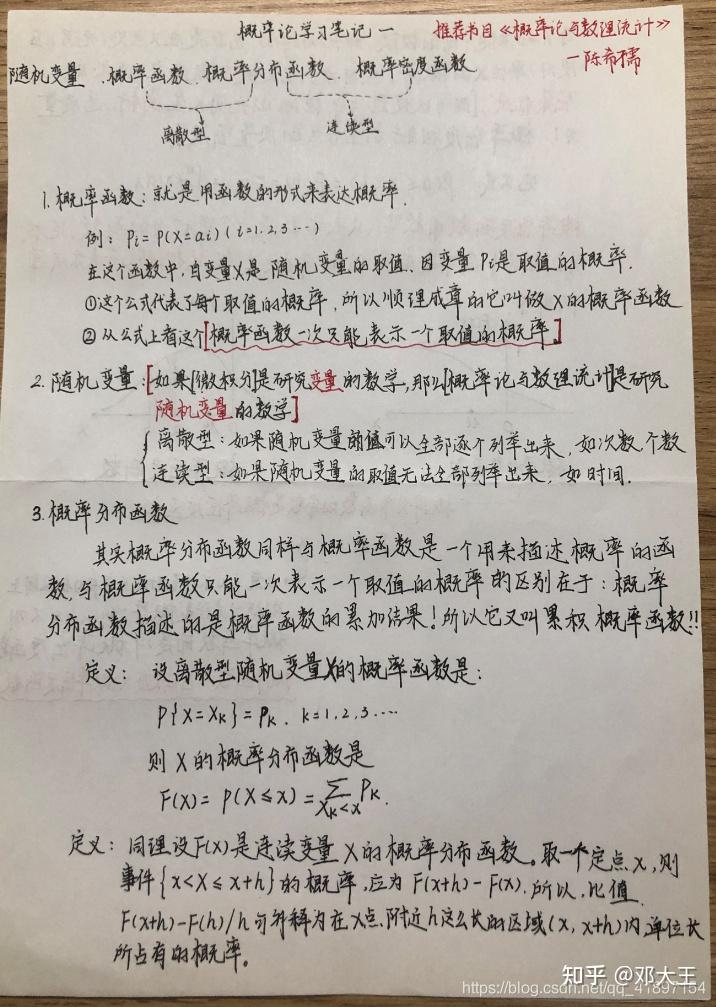 概率论学习笔记一
推荐书目《概率论与数理统计》
—陈希孺
随机变量、概率函数、概率分布函数、概率密度函数
离散型 连续型
1. 概率函数：就是用函数的形式来表达概率.
例：Pi=P(X=ai)(i=1,2,3…)
在这个函数中，自变量X是随机变量的取值、因变量Pi是取值的概率.
①这个公式代表了每个取值的概率，所以顺理成章的它叫做X的概率函数
②从公式上看这个[概率函数一次只能表示一个取值的概率]
2. 随机变量：[如果[微积分]是研究变量的数学，那么[概率论与数理统计]是研究
随机变量的数学]
离散型：如果随机变量的值可以全部逐个列举出来，如次数，个数
连续型：如果随机变量的取值无法全部列举出来，如时间.
3. 概率分布函数
其实概率分布函数同样与概率函数是一个用来描述概率的函
数，与概率函数只能一次表示一个取值的概率的区别在于：概率
分布函数描述的是概率函数的累加结果！所以它又叫累积概率函数!!
定义：设离散型随机变量X的概率函数是：
P{X=Xk}=Pk. k=1,2,3….
则X的概率分布函数是
F(X)=P(X≤x)=∑Xk<x Pk.
定义：同理设F(X)是连续变量X的概率分布函数。取一个定点x，则
事件{x<X≤x+h}的概率，应为F(x+h)-F(x).所以，比值
F(x+h)-F(h)/h可外释为在x点附近h这么长的区域(x,x+h)内，单位长
所占有的概率。
知乎 @邓大王
https://blog.csdn.net/qq_41897154